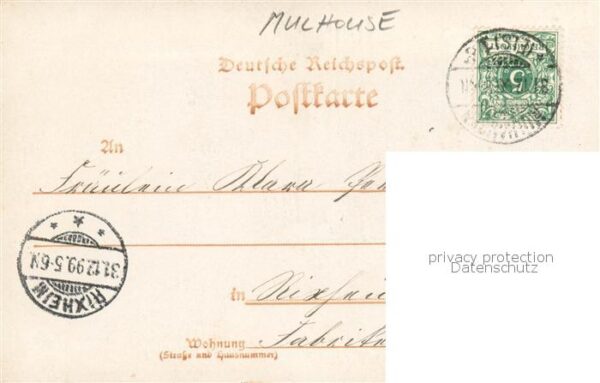 MULHOUSE
Deutsche Reichspost.
Postkarte
5
An
Fräulein Klara
privacy protection
Datenschutz
31.12.99.5-6N.
RIXHEIM
in Rixhei
Wohnung Fabrik
(Straße und Hausnummer)